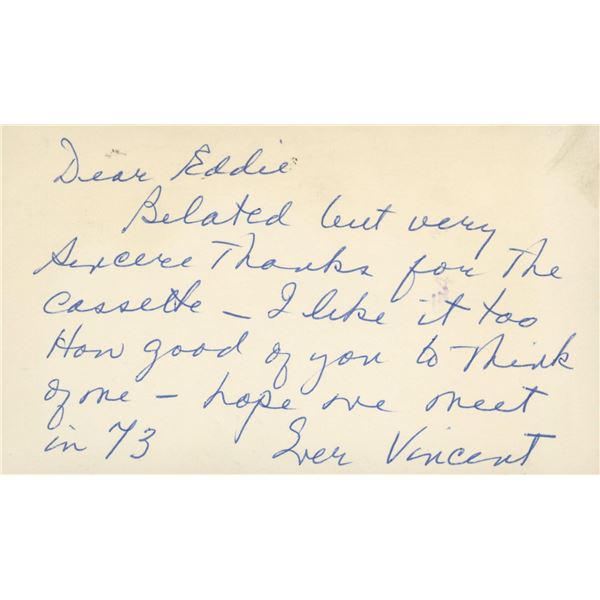 Dear Eddie
Belated but very
sincere Thanks for the
cassette – I like it too
How good of you to think
of me – hope we meet
in 73 Ever Vincent